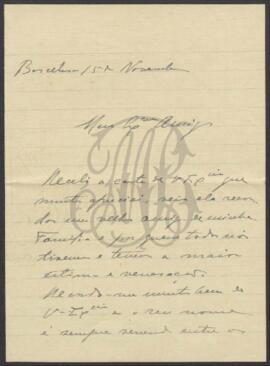 Barcelos 15 de Novembro
Meu Exmo Amigo
Recebi a carta de V. Excia que
muito apreciei, pois ela recor
dou um velho amigo de minha
Familia e por quem todos nós
tivemos e temos a maior
estima e veneração.
Recordo-me muito bem de
V. Excia e o seu nome
é sempre entre os